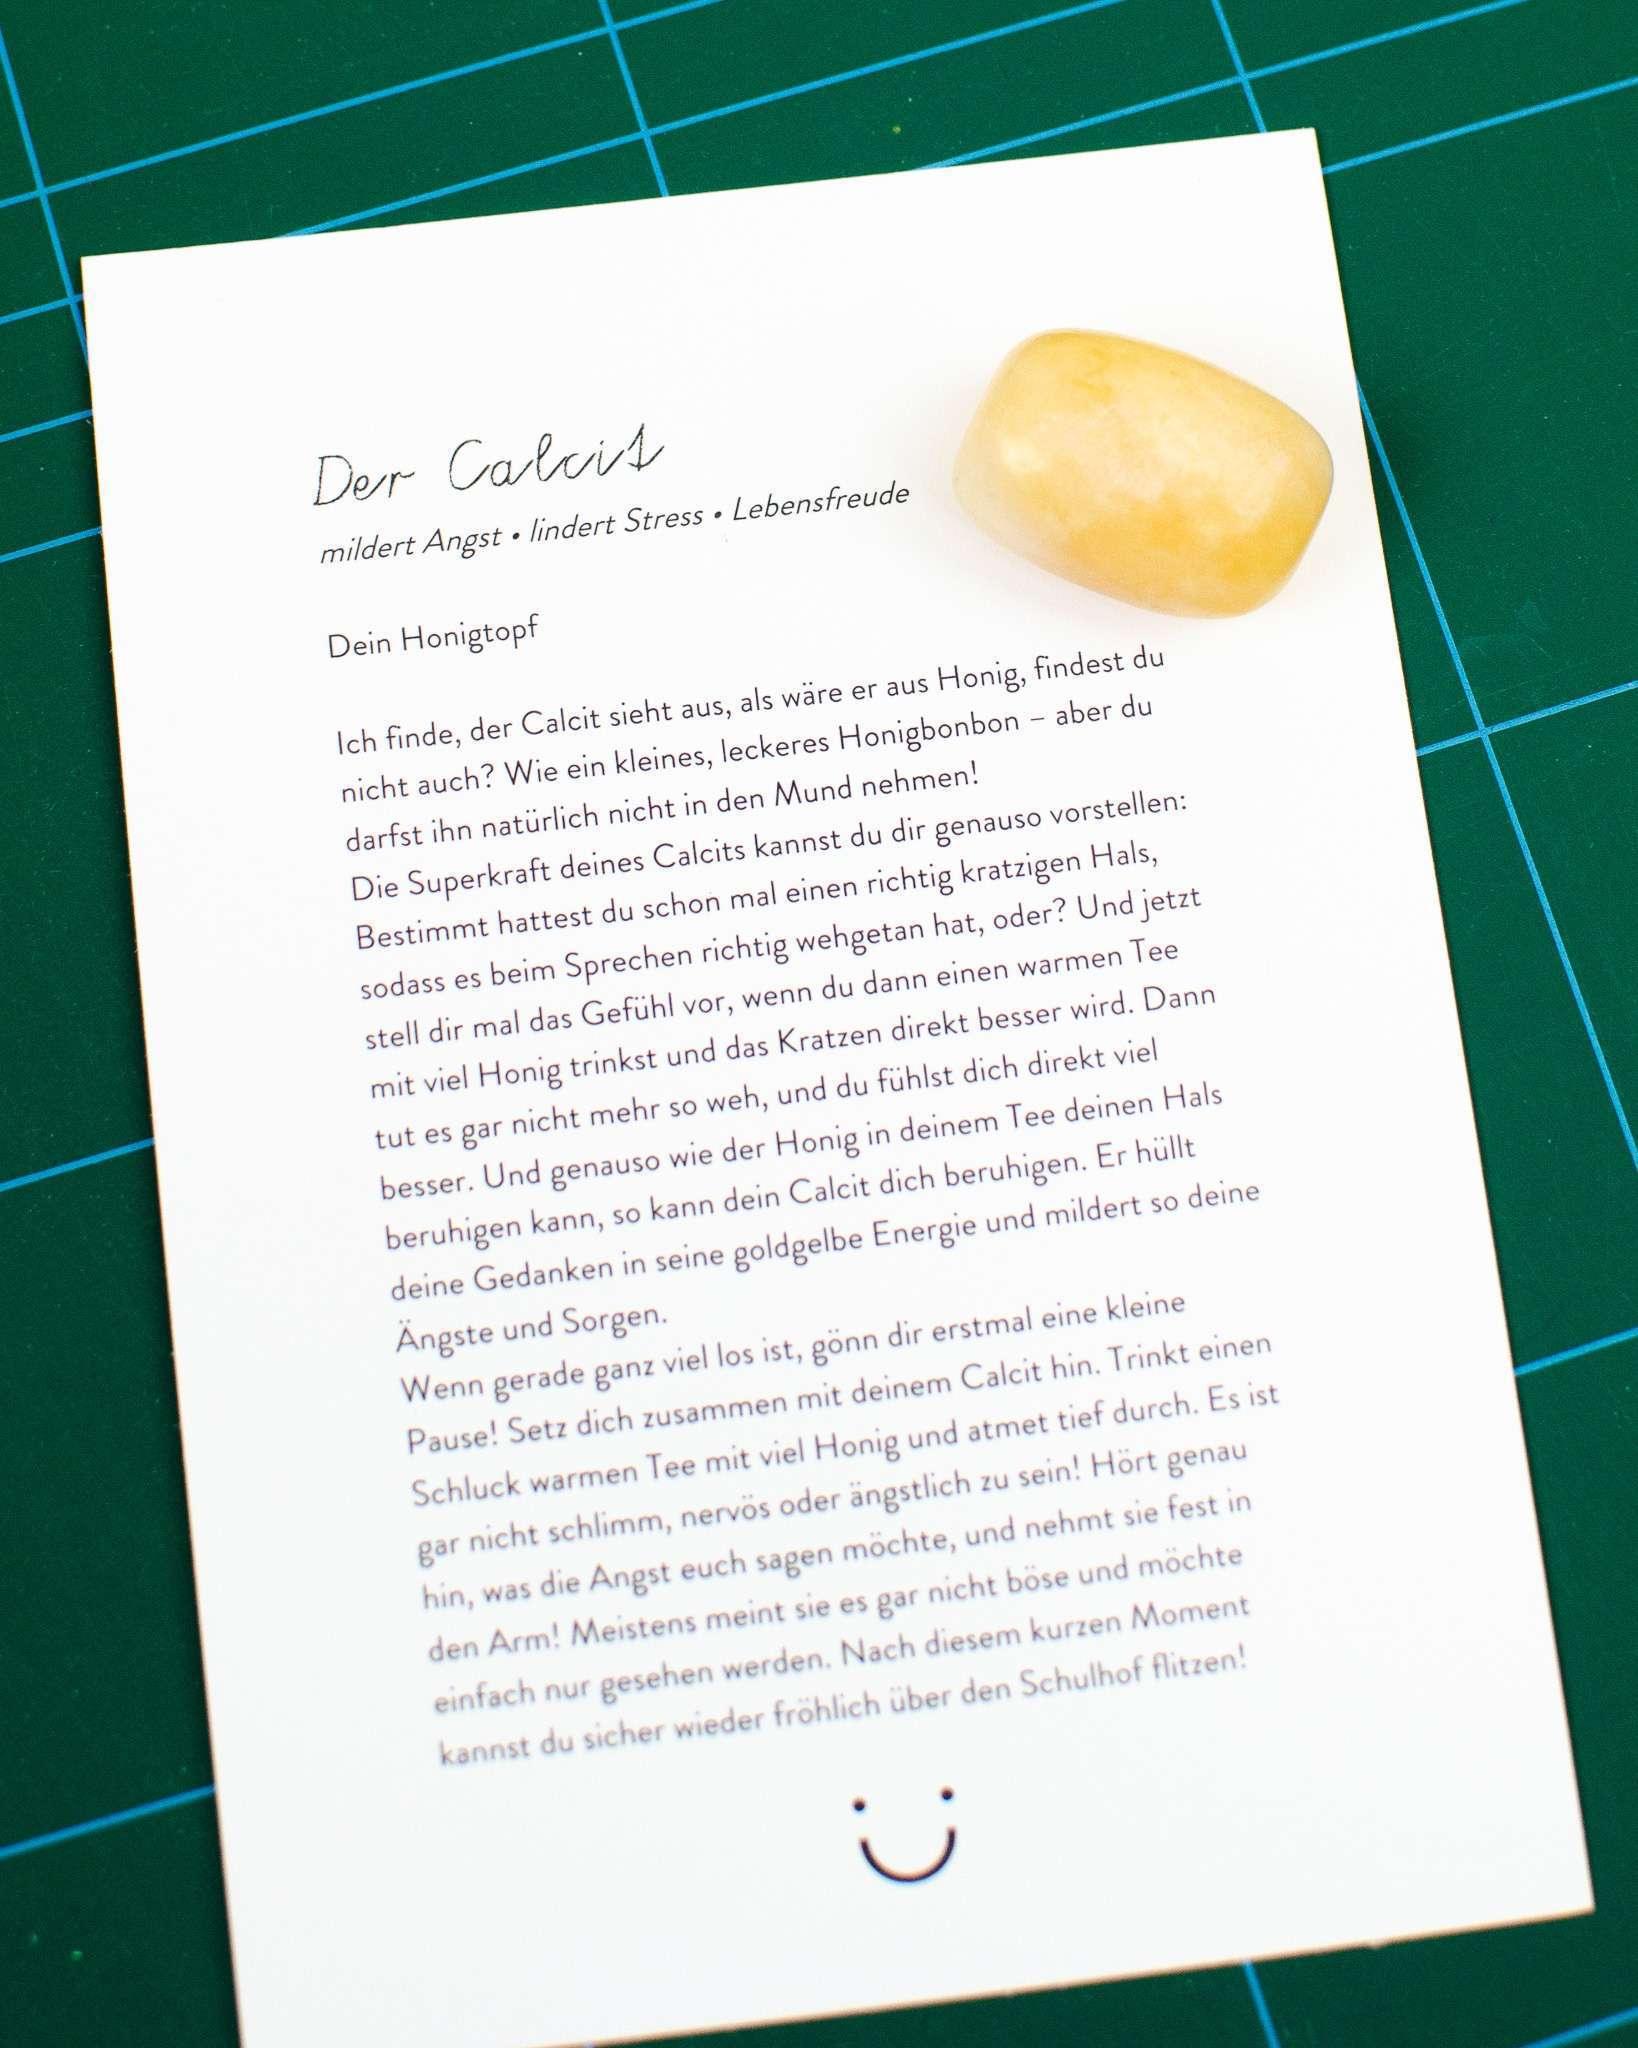 Der Calcit
mildert Angst • lindert Stress • Lebensfreude
Dein Honigtopf
Ich finde, der Calcit sieht aus, als wäre er aus Honig, findest du
nicht auch? Wie ein kleines, leckeres Honigbonbon – aber du
darfst ihn natürlich nicht in den Mund nehmen!
Die Superkraft deines Calcits kannst du dir genauso vorstellen:
Bestimmt hattest du schon mal einen richtig kratzigen Hals,
sodass es beim Sprechen richtig wehgetan hat, oder? Und jetzt
stell dir mal das Gefühl vor, wenn du dann einen warmen Tee
mit viel Honig trinkst und das Kratzen direkt besser wird. Dann
tut es gar nicht mehr so weh, und du fühlst dich direkt viel
besser. Und genauso wie der Honig in deinem Tee deinen Hals
beruhigen kann, so kann dein Calcit dich beruhigen. Er hüllt
deine Gedanken in seine goldgelbe Energie und mildert so deine
Ängste und Sorgen.
Wenn gerade ganz viel los ist, gönn dir erstmal eine kleine
Pause! Setz dich zusammen mit deinem Calcit hin. Trinkt einen
Schluck warmen Tee mit viel Honig und atmet tief durch. Es ist
gar nicht schlimm, nervös oder ängstlich zu sein! Hört genau
hin, was die Angst euch sagen möchte, und nehmt sie fest in
den Arm! Meistens meint sie es gar nicht böse und möchte
einfach nur gesehen werden. Nach diesem kurzen Moment
kannst du sicher wieder fröhlich über den Schulhof flitzen!